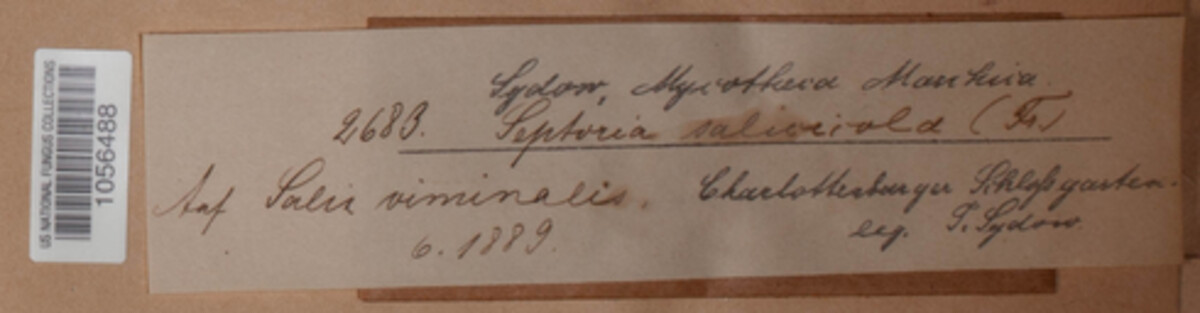 US NATIONAL FUNGUS COLLECTIONS
1056488
Sydow, Mycotheca Marchica.
2683. Septoria salicicola (Fr.)
Auf Salix viminalis. Charlottenburger Schloßgarten.
6. 1889. leg. P. Sydow.